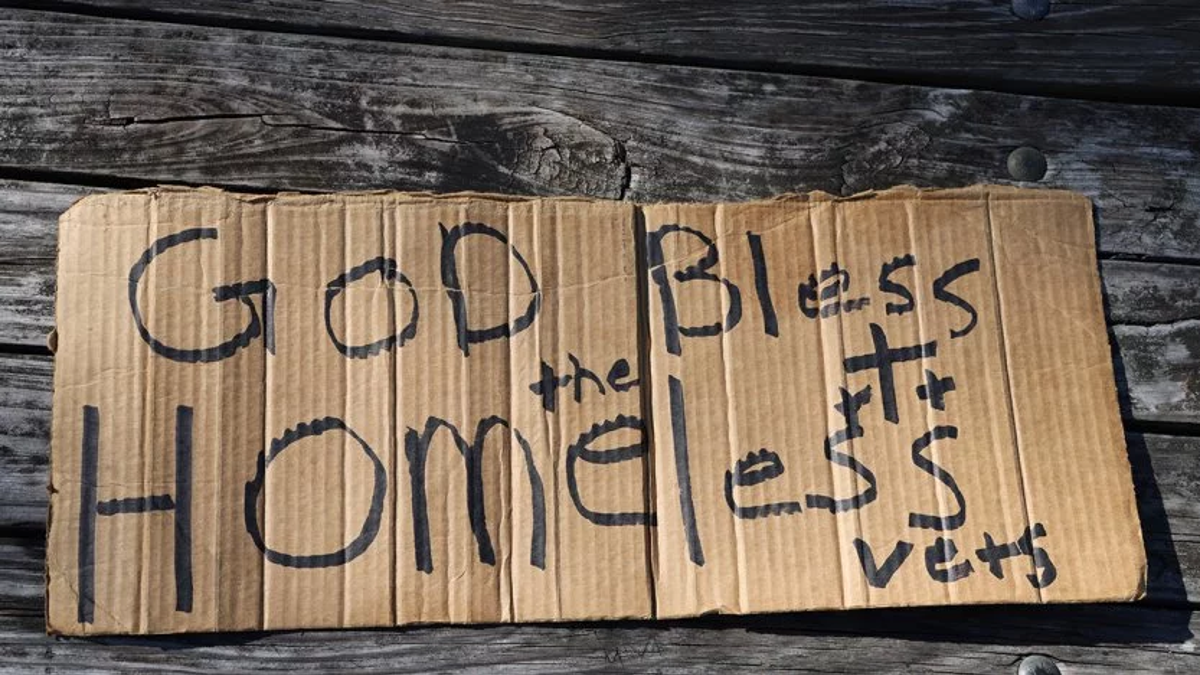 GoD Bless
the
Homeless
vets